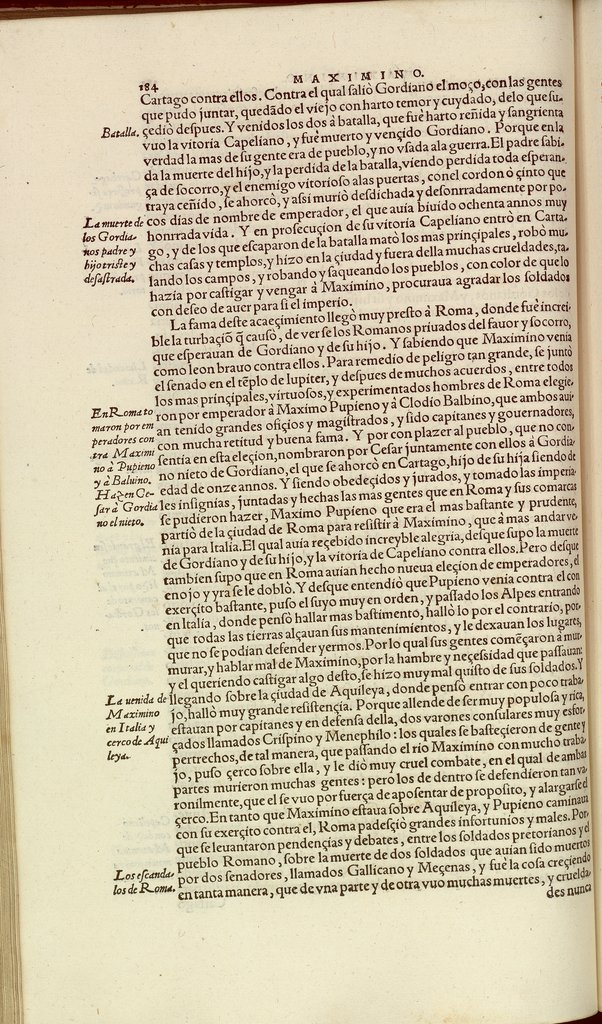 MAXIMINO.
184
Cartago contra ellos. Contra el qual saliò Gordiano el moço, con las gentes
que pudo juntar, quedãdo el viejo con harto temor y cuydado, delo que su-
cediò despues. Y venidos los dos à batalla, que fuè harto reñida y sangrienta
Batalla.
vuo la vitoria Capeliano, y fuè muerto y vençido Gordiano. Porque en la
verdad la mas de su gente era de pueblo, y no vsada ala guerra. El padre sabi-
da la muerte del hijo, y la perdida de la batalla, viendo perdida toda esperan-
ça de socorro, y el enemigo vitorioso alas puertas, con el cordon ò çinto que
traya ceñido, se ahorcò, y assi muriò desdichada y desonrradamente por po-
La muerte de
los Gordia-
nos padre y
hijo triste y
desastrada.
cos dias de nombre de emperador, el que auia biuido ochenta annos muy
honrrada vida. Y en prosecuçion de su vitoria Capeliano entrò en Carta-
go, y de los que escaparon de la batalla matò los mas prinçipales, robò mu-
chas casas y templos, y hizo en la çiudad y fuera della muchas crueldades, ta-
lando los campos, y robando y saqueando los pueblos, con color de que lo
hazia por castigar y vengar à Maximino, procuraua agradar los soldados
con desseo de auer para si el imperio.
La fama deste acaeçimiento llegò muy presto à Roma, donde fuè increi-
ble la turbaçiõ q̃ causò, de verse los Romanos priuados del fauor y socorro,
que esperauan de Gordiano y de su hijo. Y sabiendo que Maximino venia
como leon brauo contra ellos. Para remedio de peligro tan grande, se juntò
el senado en el tẽplo de Iupiter, y despues de muchos acuerdos, entre todos
los mas prinçipales, virtuosos, y experimentados hombres de Roma elegie-
En Roma to
maron por em
peradores con
tra Maximi
no à Pupieno
y à Baluino.
Hazen Ce-
sar à Gordia
no el nieto.
ron por emperador à Maximo Pupieno y à Clodio Balbino, que ambos aui-
an tenido grandes ofiçios y magistrados, y sido capitanes y gouernadores,
con mucha retitud y buena fama. Y por con plazer al pueblo, que no con-
sentia en esta eleçion, nombraron por Cesar juntamente con ellos à Gordia-
no nieto de Gordiano, el que se ahorcò en Cartago, hijo de su hija siendo de
edad de onze annos. Y siendo obedeçidos y jurados, y tomado las imperia-
les insignias, juntadas y hechas las mas gentes que en Roma y sus comarcas
se pudieron hazer, Maximo Pupieno que era el mas bastante y prudente,
partiò de la çiudad de Roma para resistir à Maximino, que à mas andar ve-
nia para Italia. El qual auia reçebido increyble alegria, desque supo la muerte
de Gordiano y de su hijo, y la vitoria de Capeliano contra ellos. Pero desque
tambien supo que en Roma auian hecho nueua eleçion de emperadores, el
enojo y yra se le doblò. Y desque entendiò que Pupieno venia contra el con
exerçito bastante, puso el suyo muy en orden, y passado los Alpes entrando
en Italia, donde pensò hallar mas bastimento, hallò lo por el contrario, por-
que todas las tierras alçauan sus mantenimientos, y le dexauan los lugares,
que no se podian defender yermos. Por lo qual sus gentes començaron à mur-
murar, y hablar mal de Maximino, por la hambre y neçessidad que passauan:
y el queriendo castigar algo desto, se hizo muy mal quisto de sus soldados. Y
La uenida de
Maximino
en Italia y
cerco de Aqui
leya.
llegando sobre la çiudad de Aquileya, donde pensò entrar con poco traba-
jo, hallò muy grande resistençia. Porque allende de ser muy populosa y rica,
estauan por capitanes y en defensa della, dos varones consulares muy esfor-
çados llamados Crispino y Menephilo: los quales se basteçieron de gente y
pertrechos, de tal manera, que passando el rio Maximino con mucho traba-
jo, puso çerco sobre ella, y le diò muy cruel combate, en el qual de ambas
partes murieron muchas gentes: pero los de dentro se defendieron tan va-
ronilmente, que el se vuo por fuerça de aposentar de proposito, y alargarse el
çerco. En tanto que Maximino estaua sobre Aquileya, y Pupieno caminaua
con su exerçito contra el, Roma padesçiò grandes infortunios y males. Por-
que se leuantaron pendençias y debates, entre los soldados pretorianos y el
pueblo Romano, sobre la muerte de dos soldados que auian sido muertos
Los escanda-
los de Roma.
por dos senadores, llamados Gallicano y Meçenas, y fuè la cosa creçiendo
en tanta manera, que de vna parte y de otra vuo muchas muertes, y cruelda-
des nunca